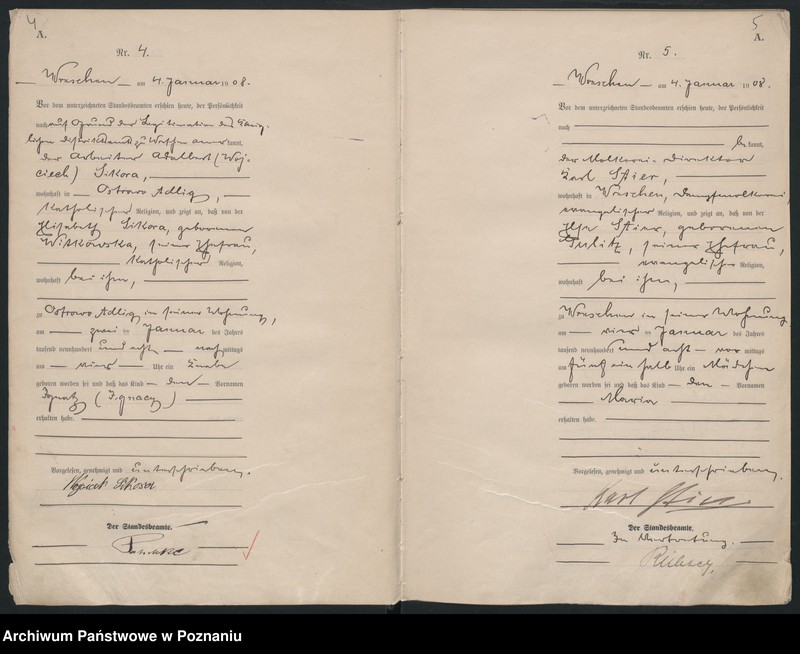 4
A.
Nr. 4.
Wreschen am 4. Januar 1908.
Vor dem unterzeichneten Standesbeamten erschien heute, der Persönlichkeit
nach auf Grund der Legitimation des König-
lichen Distriktsamts zu Wreschen anerkannt,
der Arbeiter Adalbert (Woj-
ciech) Sikora,
wohnhaft in Ostrowo Adlig,
katholischer Religion, und zeigt an, daß von der
Elisabeth Sikora, geborenen
Witkowska, seiner Ehefrau,
katholischer Religion,
wohnhaft bei ihm,
zu Ostrowo Adlig in seiner Wohnung,
am zwei ten Januar des Jahres
tausend neunhundert und acht nachmittags
um vier Uhr ein Knabe
geboren worden sei und daß das Kind den Vornamen
Ignatz (Ignacy)
erhalten habe.
Vorgelesen, genehmigt und unterschrieben.
Sikora
Der Standesbeamte.
5
A.
Nr. 5.
Wreschen am 4. Januar 1908.
Vor dem unterzeichneten Standesbeamten erschien heute, der Persönlichkeit
nach
bekannt,
der Molkerei-Direktor
Karl Stier,
wohnhaft in Wreschen, Dampfmolkerei,
evangelischer Religion, und zeigt an, daß von der
Else Stier, geborenen
seiner Ehefrau,
evangelischer Religion,
wohnhaft bei ihm,
zu Wreschen in seiner Wohnung
am vier ten Januar des Jahres
tausend neunhundert und acht vormittags
um fünf ein halb Uhr ein Mädchen
geboren worden sei und daß das Kind den Vornamen
Maria
erhalten habe.
Vorgelesen, genehmigt und unterschrieben.
Karl Stier.
Der Standesbeamte.
In Vertretung.
Archiwum Państwowe w Poznaniu